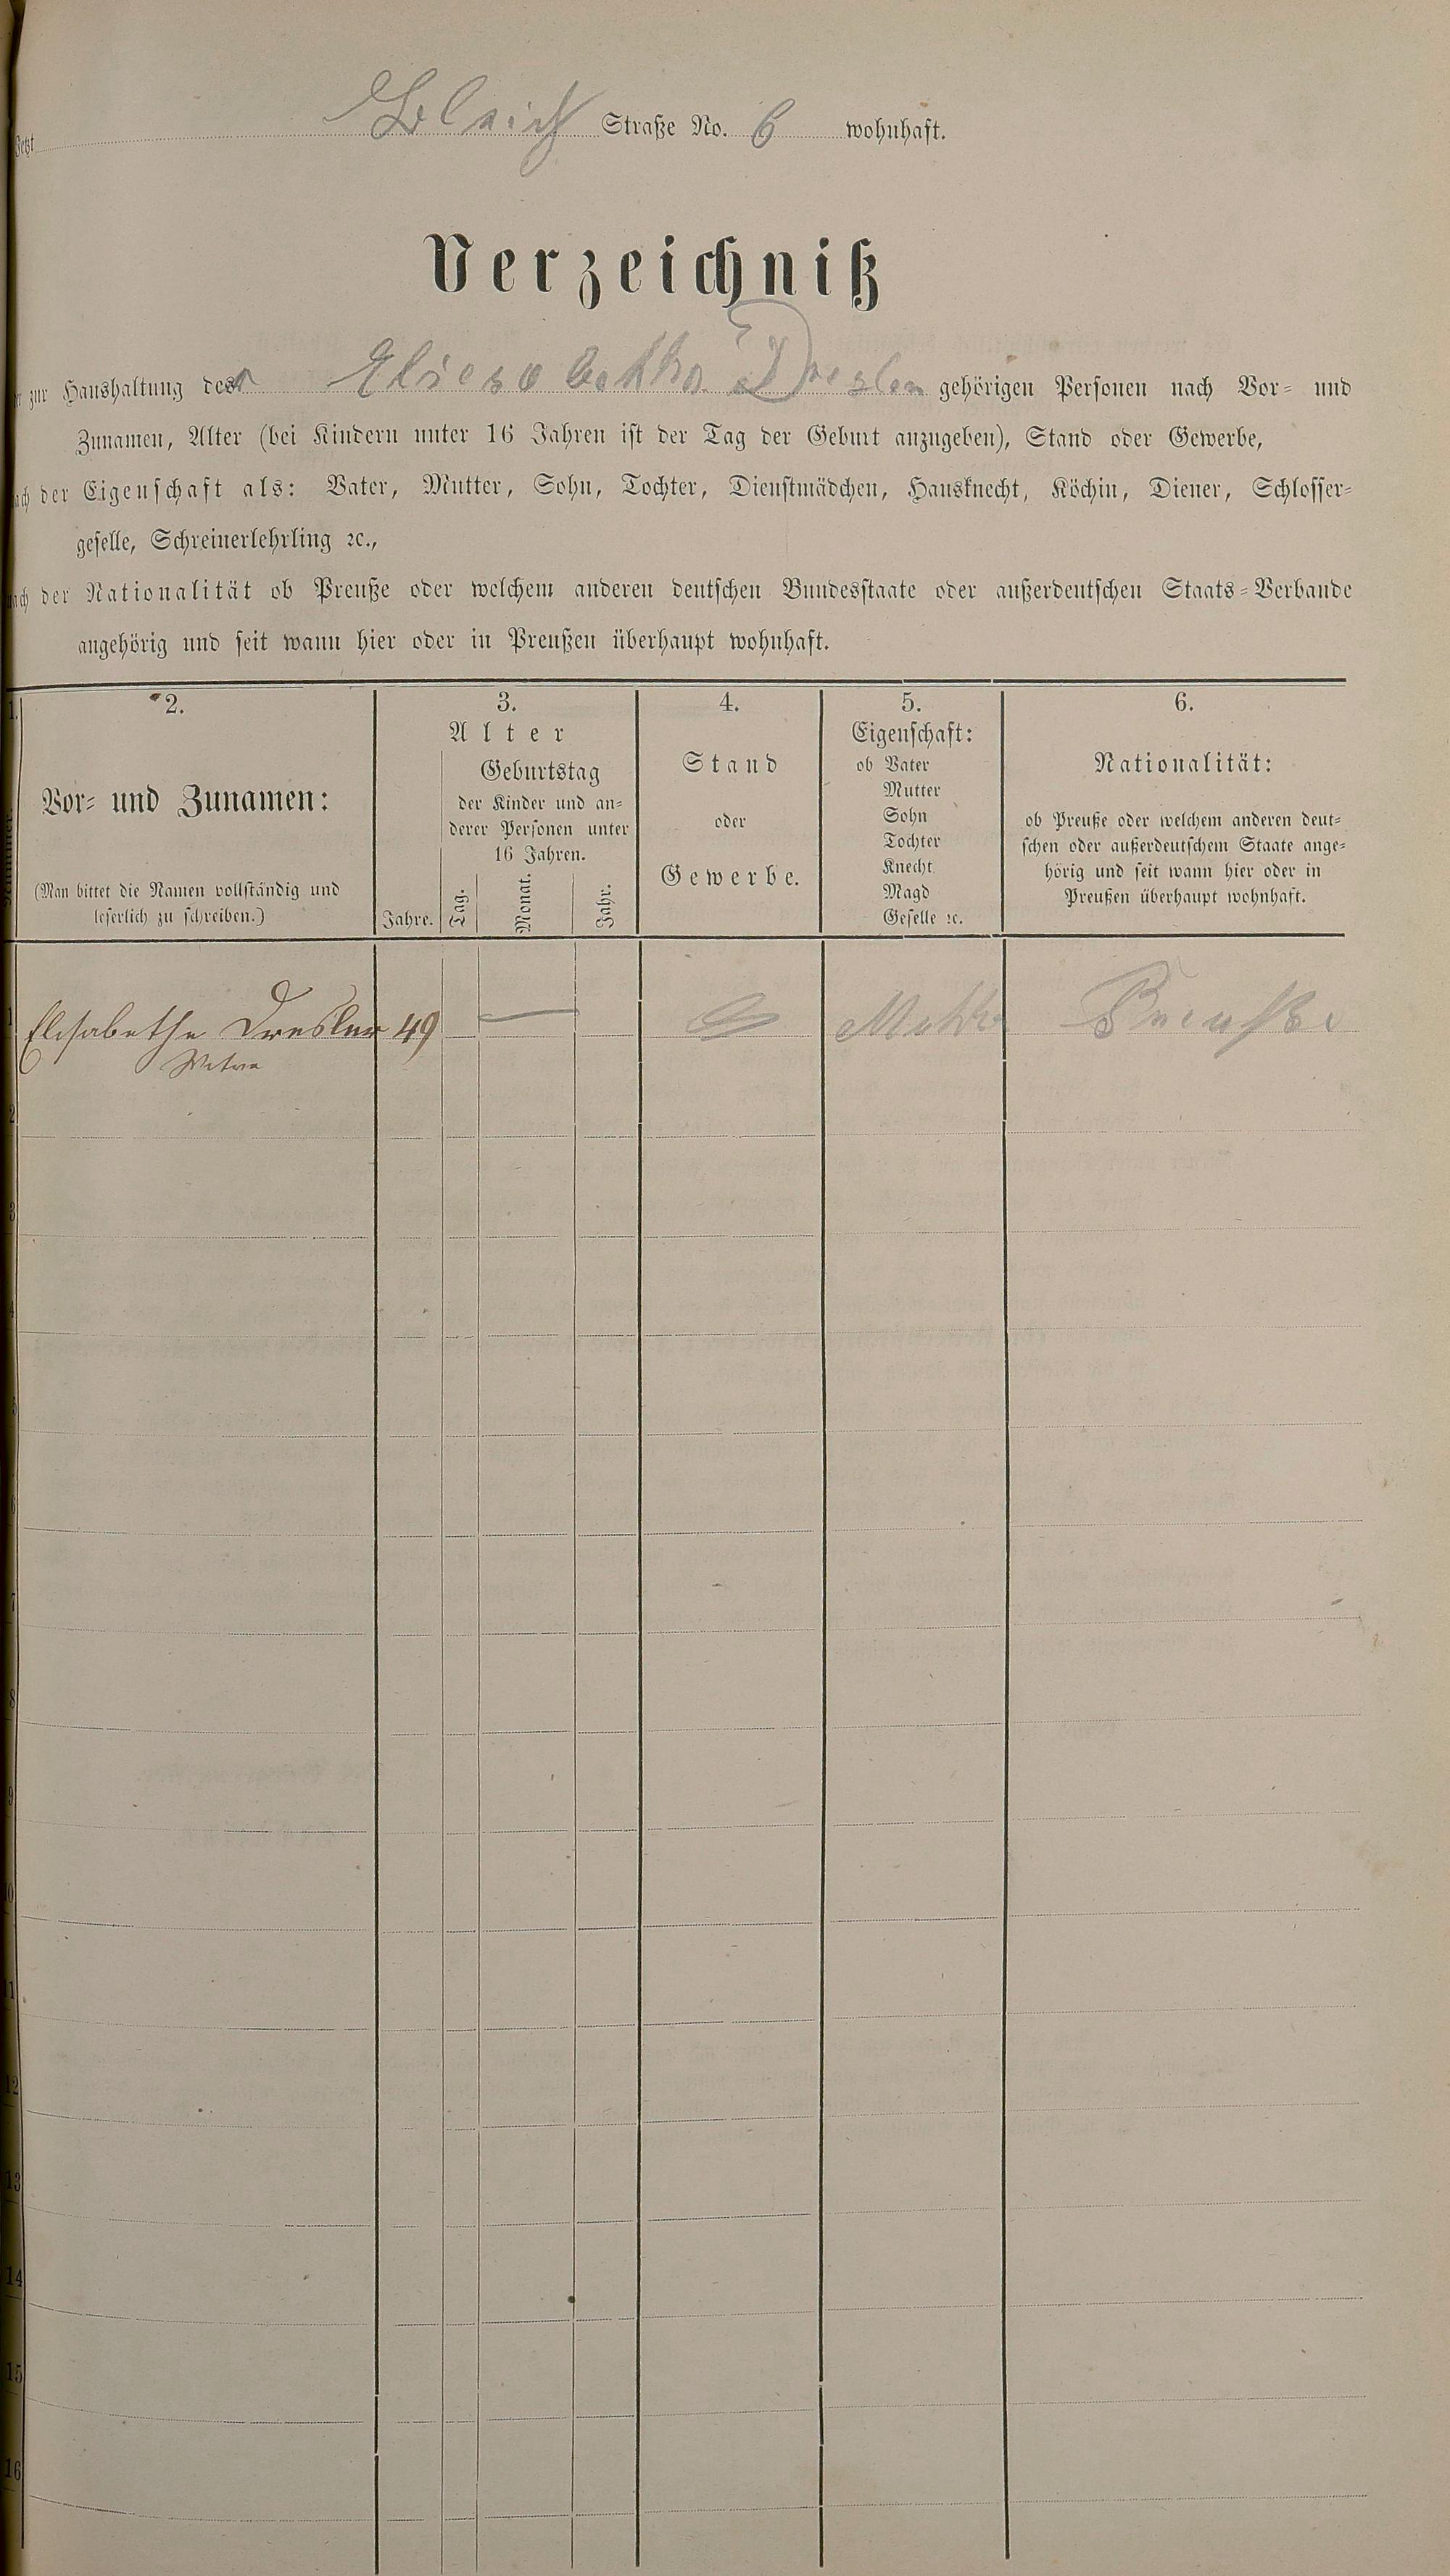 Jetzt Bleich Straße No. 6 wohnhaft.
Verzeichniß
der zur Haushaltung der Eliesabethe Dresler gehörigen Personen nach Vor- und
Zunamen, Alter (bei Kindern unter 16 Jahren ist der Tag der Geburt anzugeben), Stand oder Gewerbe,
nach der Eigenschaft als: Vater, Mutter, Sohn, Tochter, Dienstmädchen, Hausknecht, Köchin, Diener, Schlosser-
geselle, Schreinerlehrling ꝛc.,
nach der Nationalität ob Preuße oder welchem anderen deutschen Bundesstaate oder außerdeutschen Staats-Verbande
angehörig und seit wann hier oder in Preußen überhaupt wohnhaft.
1.
Nummer.
2.
Vor- und Zunamen:
(Man bittet die Namen vollständig und
leserlich zu schreiben.)
3.
Alter
Jahre.
Geburtstag
der Kinder und an-
derer Personen unter
16 Jahren.
Tag.
Monat.
Jahr.
4.
Stand
oder
Gewerbe.
5.
Eigenschaft:
ob Vater
Mutter
Sohn
Tochter
Knecht
Magd
Geselle ꝛc.
6.
Nationalität:
ob Preuße oder welchem anderen deut-
schen oder außerdeutschem Staate ange-
hörig und seit wann hier oder in
Preußen überhaupt wohnhaft.
1 Elisabethe Dresler 49 — Preuße
Witwe
2
3
4
5
6
7
8
9
10
11
12
13
14
15
16